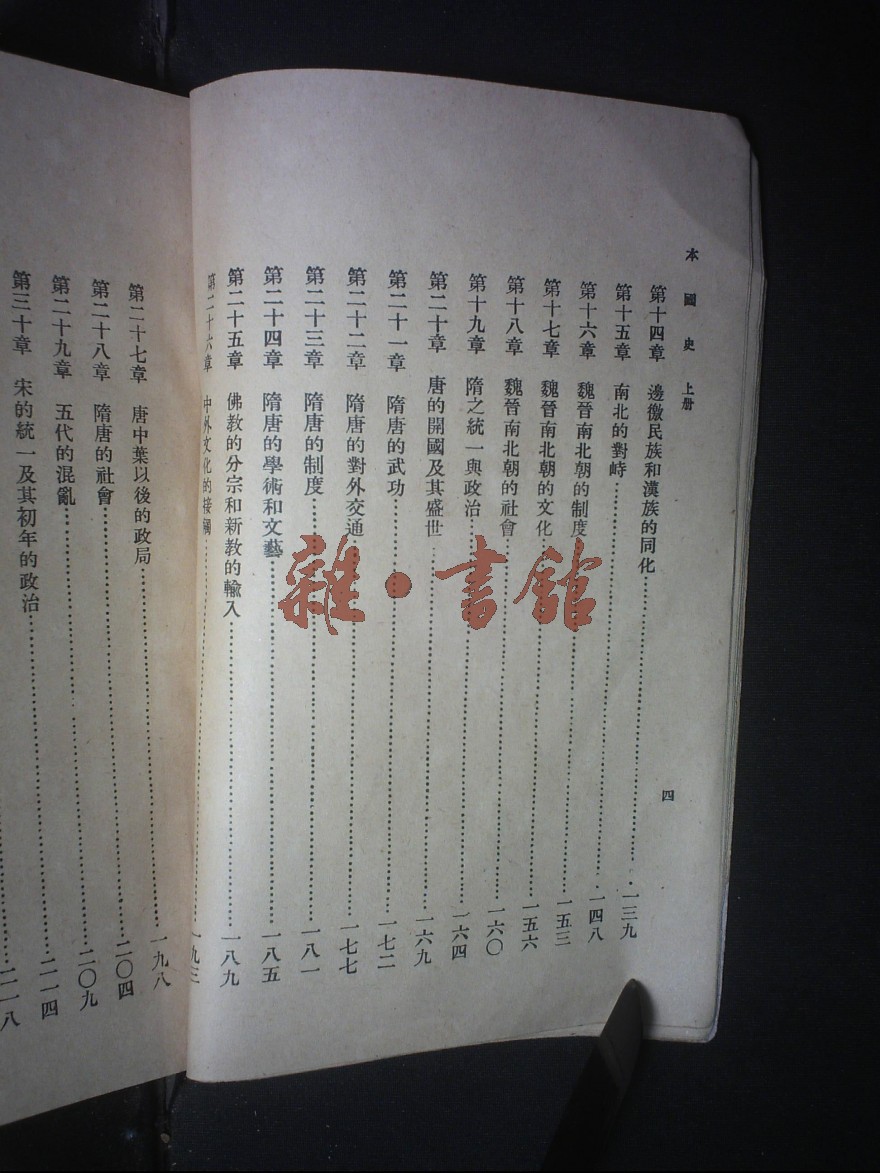 本國史 上册
四
第十四章 邊徼民族和漢族的同化……一三九
第十五章 南北的對峙……一四八
第十六章 魏晉南北朝的制度……一五三
第十七章 魏晉南北朝的文化……一五六
第十八章 魏晉南北朝的社會……一六〇
第十九章 隋之統一與政治……一六四
第二十章 唐的開國及其盛世……一六九
第二十一章 隋唐的武功……一七二
第二十二章 隋唐的對外交通……一七七
第二十三章 隋唐的制度……一八一
第二十四章 隋唐的學術和文藝……一八五
第二十五章 佛教的分宗和新教的輸入……一八九
第二十六章 中外文化的接觸……一九三
第二十七章 唐中葉以後的政局……一九八
第二十八章 隋唐的社會……二〇四
第二十九章 五代的混亂……二〇九
第三十章 宋的統一及其初年的政治……二一四
二一八
雜·書館